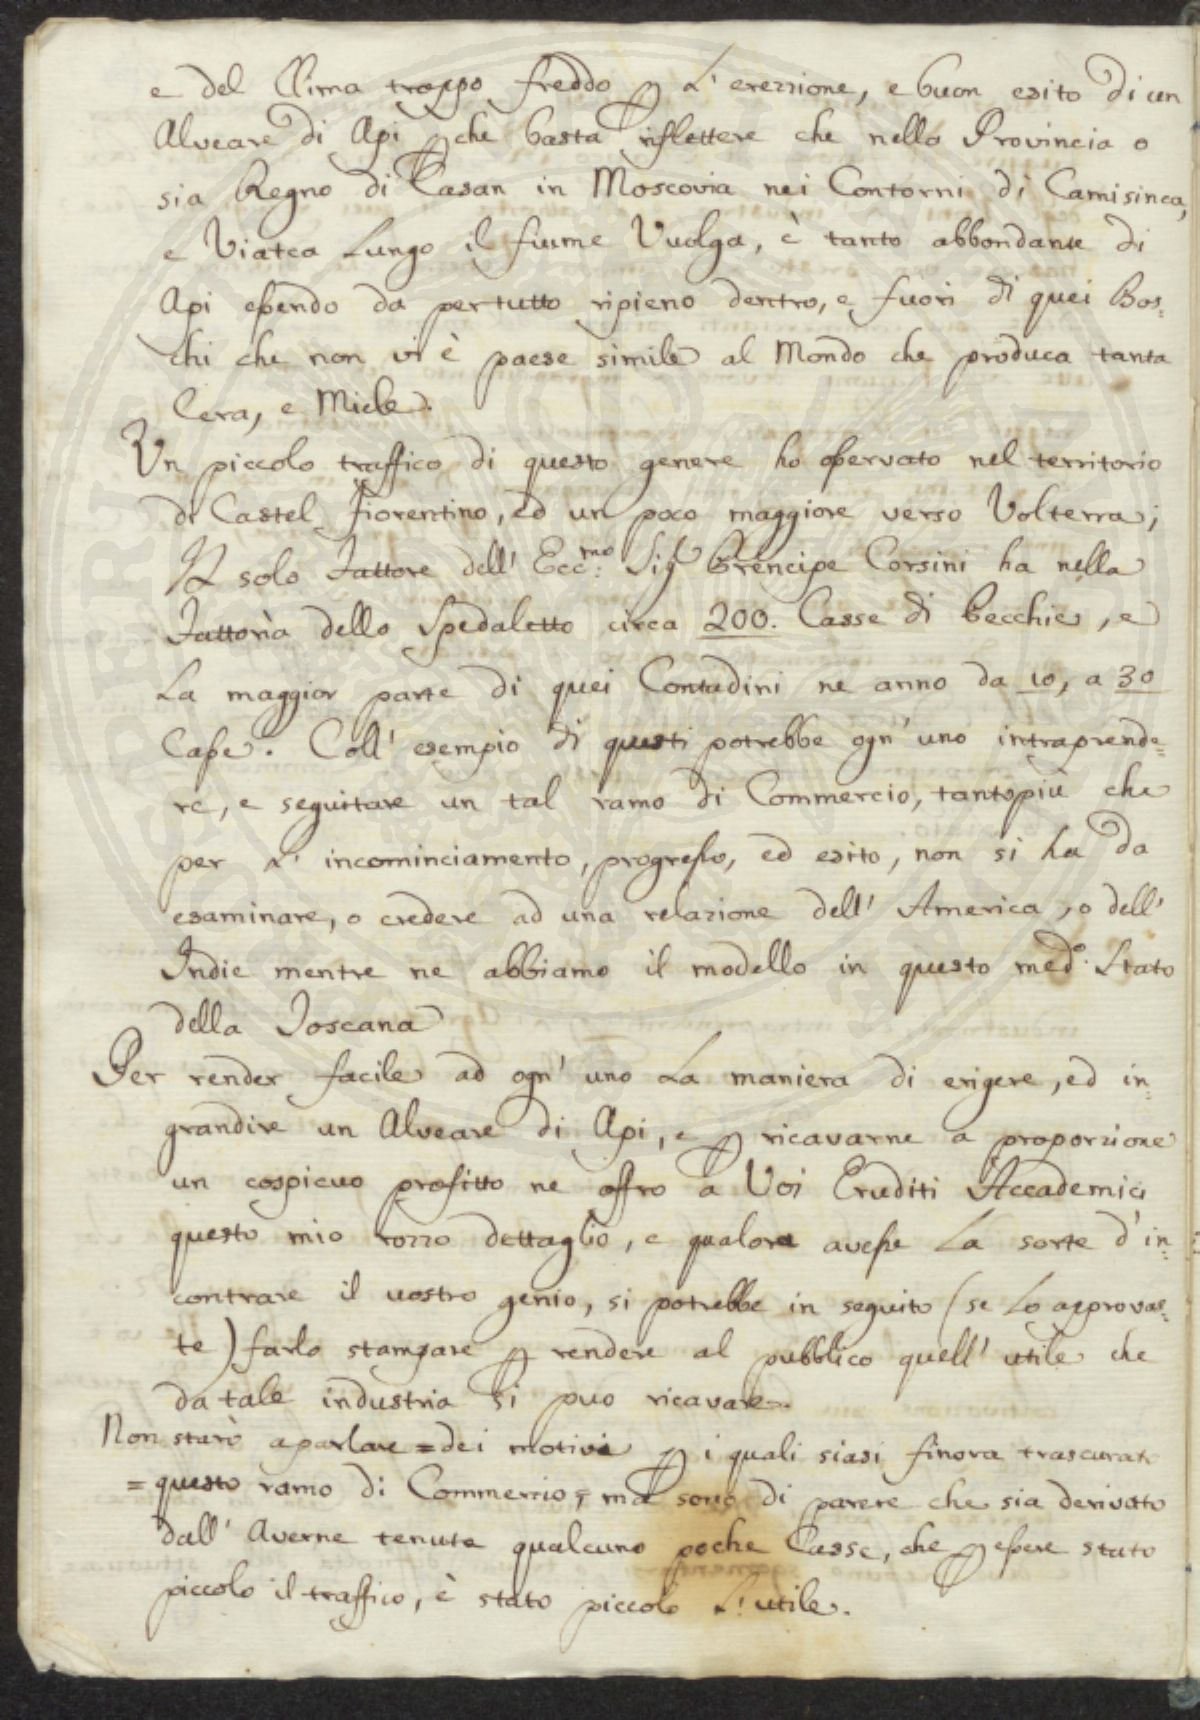 e del Clima troppo freddo p L'erezzione, e buon esito di un
Alveare di Api pche basta riflettere che nella Provincia o
sia Regno di Casan in Moscovia nei Contorni di Camisinca,
e Viatca Lungo il fiume Vuolga, è tanto abbondante di
Api essendo da per tutto ripieno dentro, e fuori di quei Bos=
chi che non vi è paese simile al Mondo che produca tanta
Cera, e Miele.
Un piccolo traffico di questo genere ho osservato nel territorio
di Castel Fiorentino, ed un poco maggiore verso Volterra;
Il solo Fattore dell' Ecc:mo Sig Prencipe Corsini ha nella
Fattoria dello Spedaletto circa 200. Casse di Pecchie, e
La maggior parte di quei Contadini ne anno da 10, a 30
Casse. Coll' esempio di questi potrebbe ogn' uno intraprende=
re, e seguitare un tal ramo di Commercio, tantopiù che
per L' incominciamento, progresso, ed esito, non si ha da
esaminare, o credere ad una relazione dell' America, o dell'
Indie mentre ne abbiamo il modello in questo med.o Stato
della Toscana
Per render facile ad ogn' uno La maniera di erigere, ed in=
grandire un Alveare di Api, e p ricavarne a proporzione
un cospicuo profitto ne offro a Voi Eruditi Accademici
questo mio rozzo dettaglio, e qualora avesse La sorte d'in=
contrare il vostro genio, si potrebbe in seguito (se Lo approvas=
te) farlo stampare p rendere al pubblico quell' utile che
da tale industria si puo ricavare.
Non starò a parlare = dei motivi p i quali siasi finora trascurato
= questo ramo di Commercio; ma sono di parere che sia derivato
dall' Averne tenute qualcuno poche Casse, che p essere stato
piccolo il traffico, è stato piccolo L' utile.